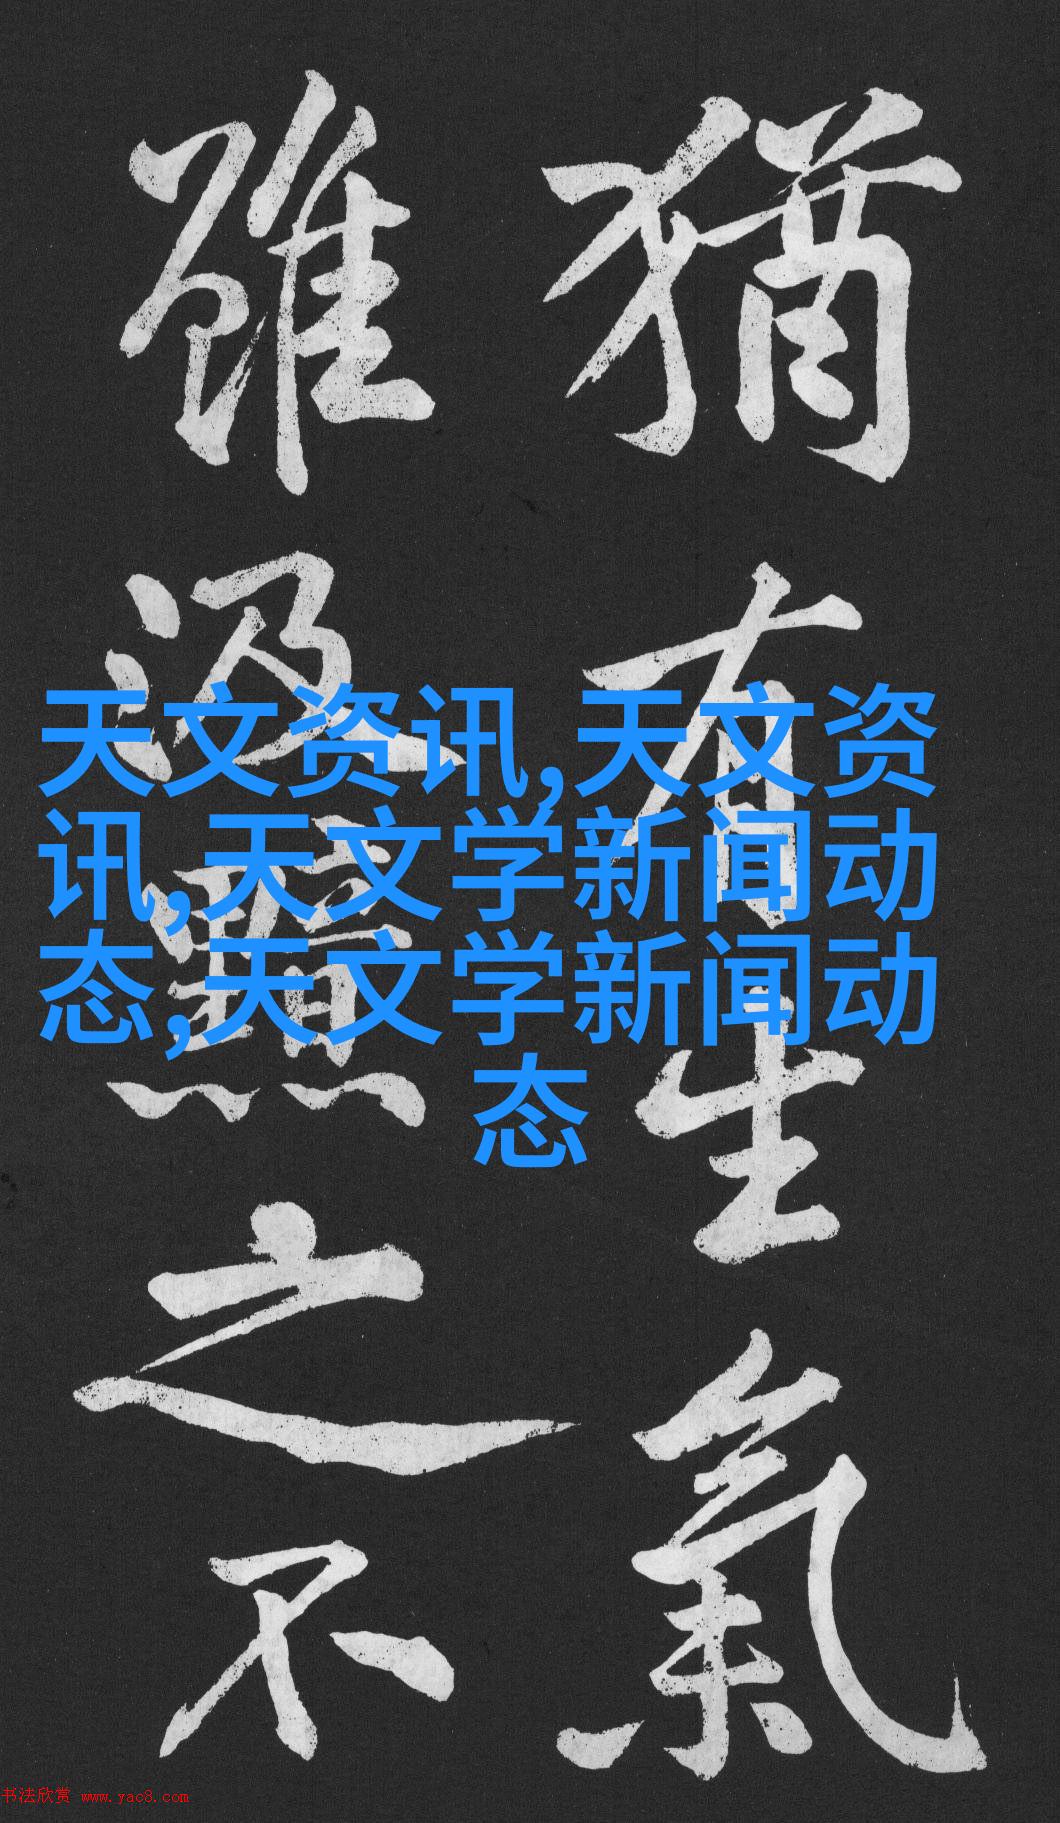 猶有生氣
雖汲黯之不
天文资讯,天文资
讯,天文学新闻动
态,天文学新闻动
态
书法欣赏 www.yac8.com